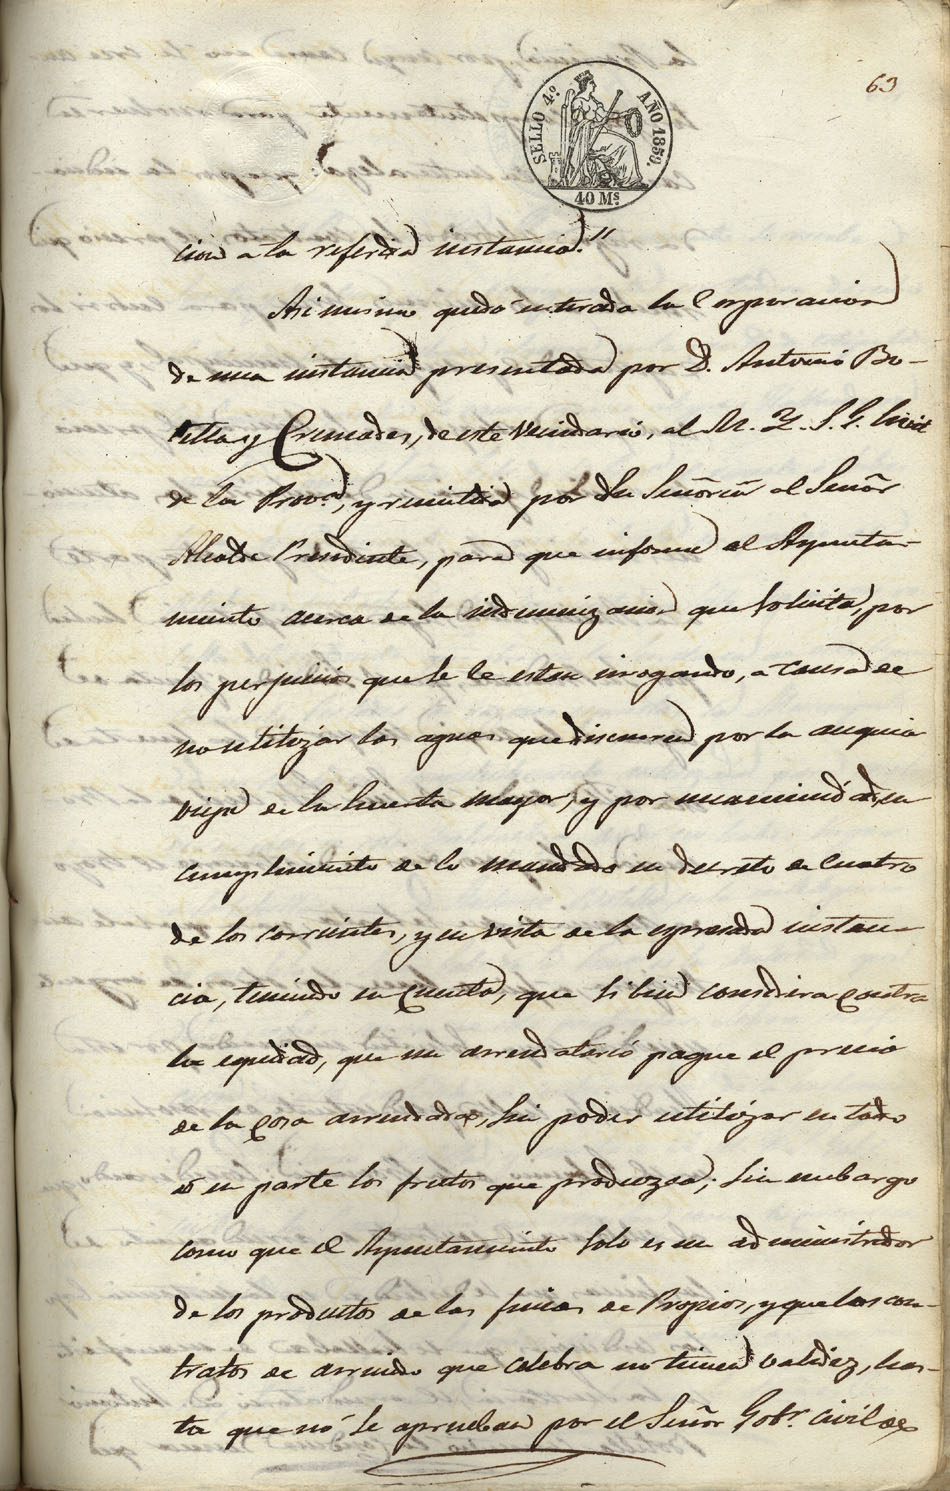 63
SELLO 4.º AÑO 1859.
40 Ms
cion a la referida instancia."
Asimismo quedó enterada la Corporacion
de una instancia presentada por D. Antonio Bo-
tella y Cremades, de este vecindario, al M. Y. S. G. Civil
de la Prov.ª, y remitida por Su Señoria al Señor
Alcalde Presidente, para que informe el Ayunta-
miento acerca de la indemnizacion que solicita, por
los perjuicios que se le estan irrogando, a causa de
no utilizar las aguas que discurren por la acequia
vieja de la huerta mayor, y por unanimidad, en
cumplimiento de lo mandado en decreto de cuatro
de los corrientes, y en vista de la espresada instan-
cia, teniendo en cuenta, que si bien considera contra
la equidad, que un arrendatario pague el precio
de la cosa arrendada, sin poder utilizar en todo
ó en parte los frutos que produzca; sin embargo
como que el Ayuntamiento solo es un administrador
de los productos de las fincas de Propios, y que los con-
tratos de arriendo que celebra no tienen validez, has-
ta que nó se aprueban por el Señor Gobr. Civil de